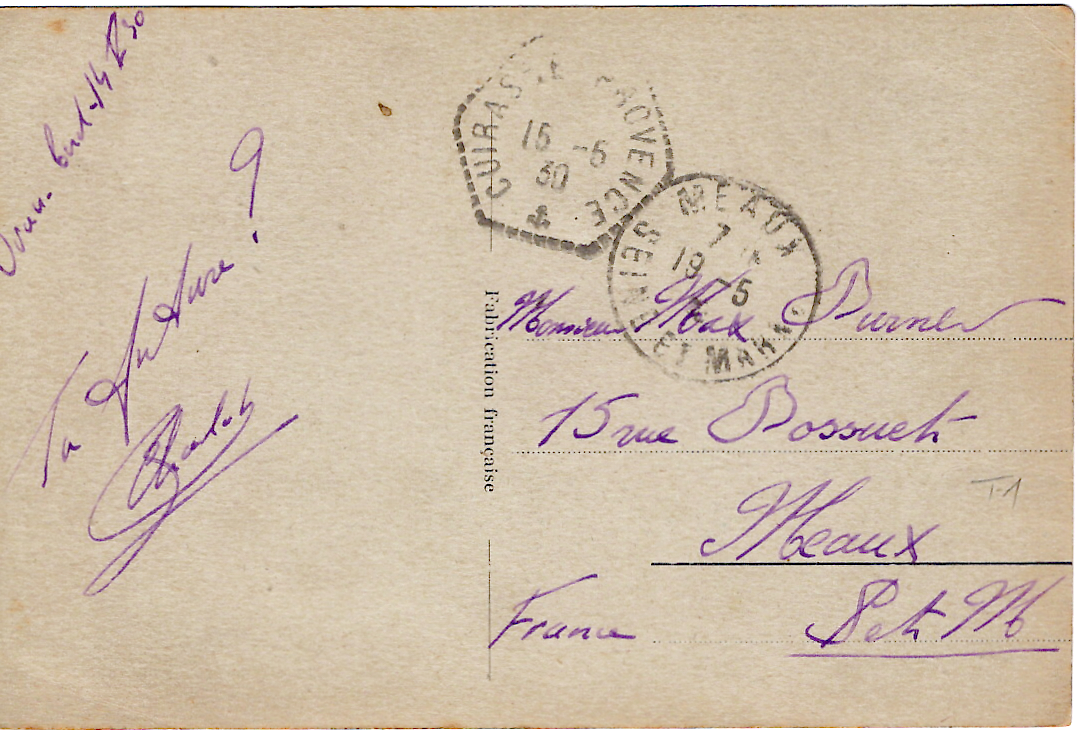 14 5 30
Ta future ?
CUIRASSÉ PROVENCE
15 -5
30
MEAUX
7
19 -5
SEINE ET MARNE
Fabrication française
Monsieur Max
15 rue Bossuet
Meaux
France S et M
T-1